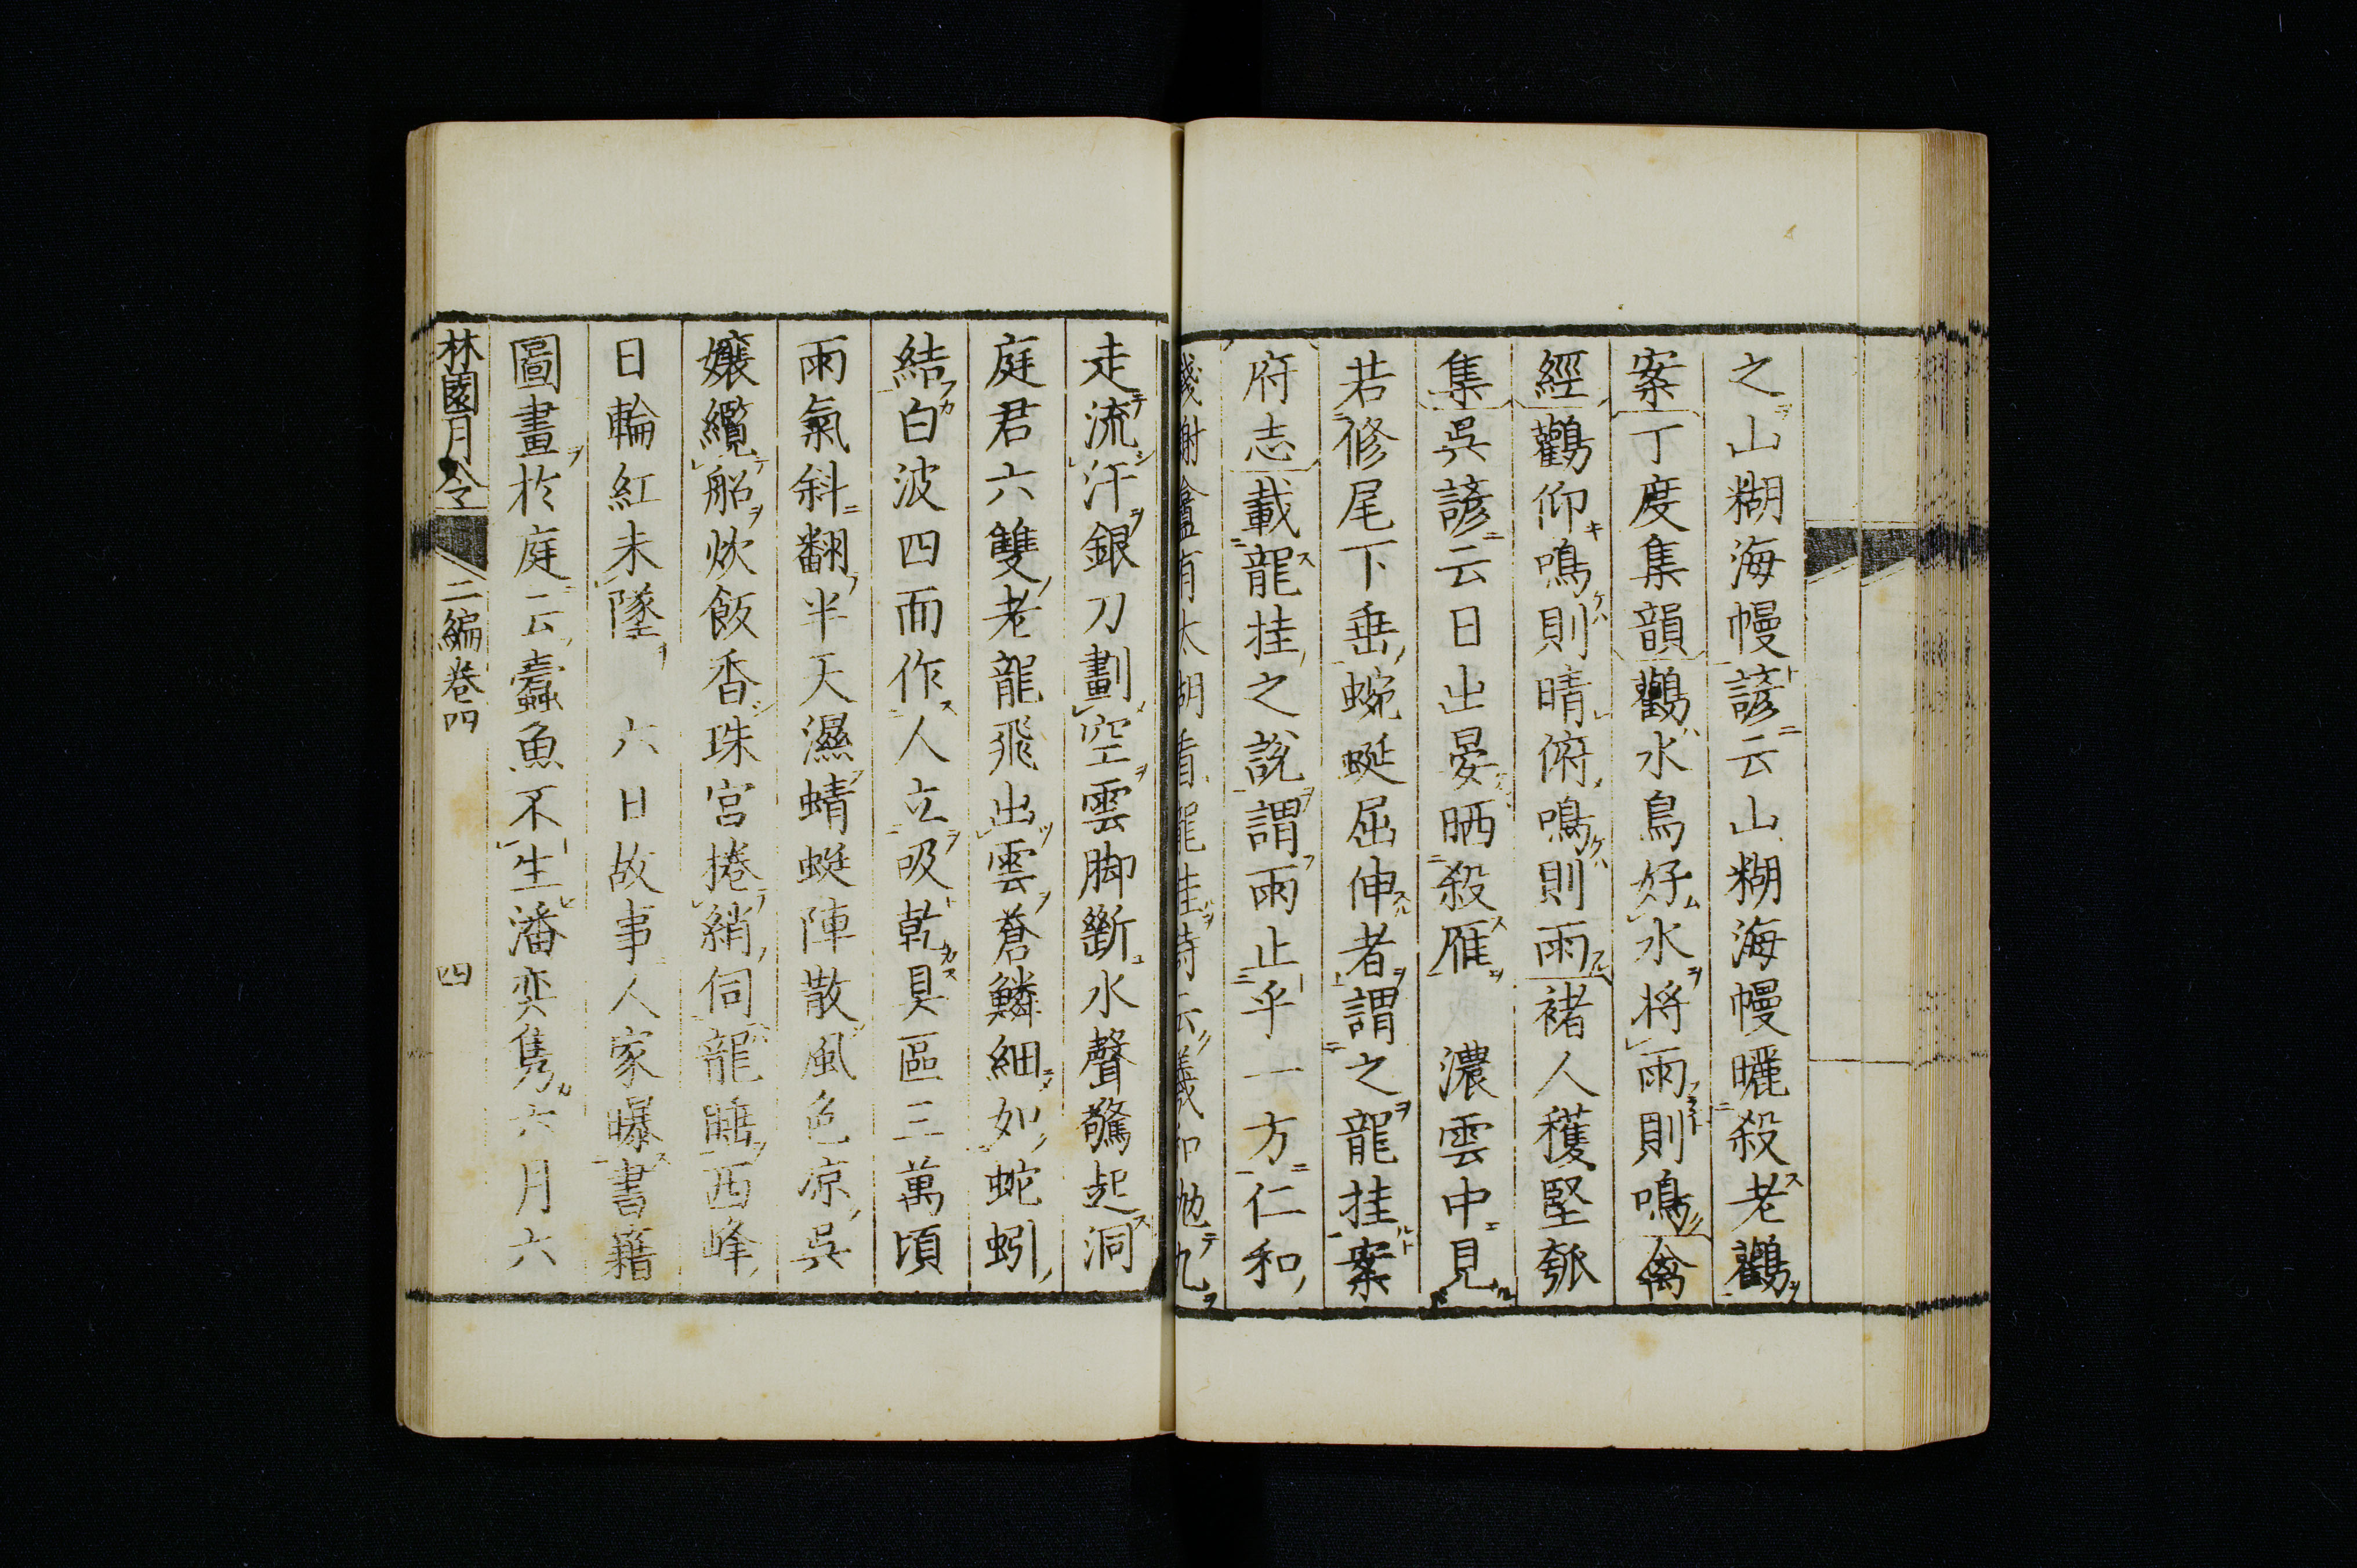 之山糊海幔諺云山糊海幔曬殺老鸛
案丁度集韻鸛水鳥好水将雨則鳴禽
經鸛仰鳴則晴俯鳴則雨褚人穫堅瓠
集吳諺云日出晏晒殺雁　濃雲中見
若修尾下垂蜿蜒屈伸者謂之龍挂案
府志載龍挂之説謂雨止乎一方仁和
走流汗銀刀劃空雲脚斷水聲驚起洞
庭君六雙老龍飛出雲蒼鱗細如蛇蚓
結白波四而作人立吸乾具區三萬頃
雨氣斜翻半天濕蜻蜓陣散風色凉吳
孃纜船炊飯香珠宮捲綃伺龍睡西峰
日輪紅未墜　六日故事人家曝書籍
圖畫於庭云蠹魚不生潘奕雋六月六
林園月令　二編卷四　四